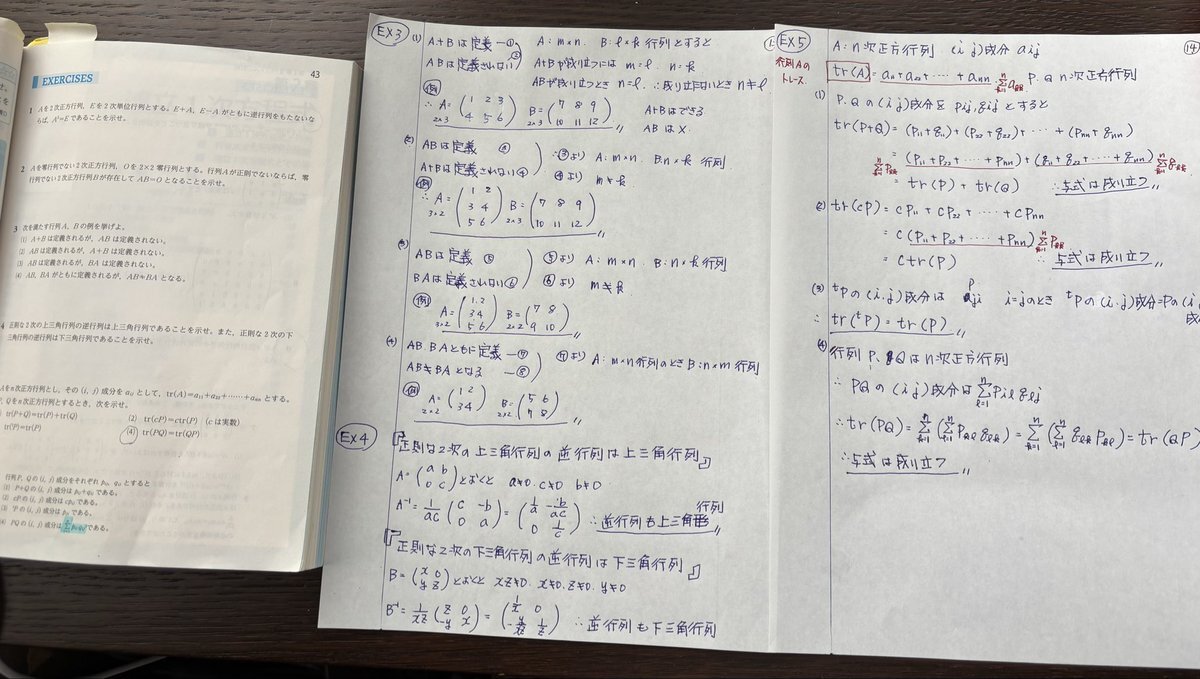 43
EXERCISES
1 Aを2次正方行列, Eを2次単位行列とする。E+A, E-Aがともに逆行列をもたないな
らば, A²=Eであることを示せ。
2 Aを零行列でない2次正方行列, Oを2×2零行列とする。行列Aが正則でないならば, 零
行列でない2次正方行列Bが存在してAB=Oとなることを示せ。
3 次を満たす行列A, Bの例を挙げよ。
(1) A+Bは定義されるが, ABは定義されない。
(2) ABは定義されるが, A+Bは定義されない。
(3) ABは定義されるが, BAは定義されない。
(4) AB, BAがともに定義されるが, AB≠BAとなる。
4 正則な2次の上三角行列の逆行列は上三角行列であることを示せ。また, 正則な2次の下
三角行列の逆行列は下三角行列であることを示せ。
Aをn次正方行列とし, その(i, j)成分をaijとして, tr(A)=a11+a22+……+annとする。
P, Qをn次正方行列とするとき, 次を示せ。
tr(P+Q)=tr(P)+tr(Q) (2) tr(cP)=ctr(P) (cは実数)
tr(ᵗP)=tr(P) (4) tr(PQ)=tr(QP)
行列P, Qの(i, j)成分をそれぞれpij, qijとすると
(1) P+Qの(i, j)成分はpij+qijである。
(2) cPの(i, j)成分はcpijである。
(3) ᵗPの(i, j)成分はpjiである。
(4) PQの(i, j)成分は である。
EX3 (1) A+Bは定義 ー① A: m×n. B: l×k 行列とすると
ABは定義されない ② A+Bが成り立つには m=l. n=k
ABが成り立つとき n=l. ∴成り立たないとき n≠l
例
∴ A = (1 2 3 / 4 5 6) B = (7 8 9 / 10 11 12) A+Bはできる
2×3 2×3 ABは×.
(2) ABは定義 ③ ∴③より A: m×n. B: n×k 行列
A+Bは定義されない④ ④より m≠k
例
∴ A = (1 2 / 3 4 / 5 6) B = (7 8 9 / 10 11 12)
3×2 2×3
(3) ABは定義 ⑤ ⑤より A: m×n B: n×k 行列
BAは定義されない⑥ ⑥より m≠k
例
A = (1 2 / 3 4 / 5 6) B = (7 8 / 9 10)
3×2 2×2
(4) AB. BAともに定義 ー⑦ ⑦より A: m×n行列のとき B: n×m 行列
AB≠BAとなる ー⑧
例 A = (1 2 / 3 4) B = (5 6 / 7 8)
2×2 2×2
EX4 『正則な2次の上三角行列の逆行列は上三角行列』
A = (a b / 0 c) とおくと a≠0. c≠0 b≠0
A⁻¹ = 1/ac (c -b / 0 a) = (1/a -b/ac / 0 1/c) ∴逆行列も上三角行列
『正則な2次の下三角行列の逆行列は下三角行列』
B = (x 0 / y z) とおくと xz≠0. x≠0. z≠0. y≠0
B⁻¹ = 1/xz (z 0 / -y x) = (1/x 0 / -y/xz 1/z) ∴逆行列も下三角行列
14
EX5 A: n次正方行列 (i j)成分 aij
行列Aのトレース.
tr(A) = a11 + a22 + ‥‥ + ann P. Q n次正方行列
(1) P. Qの(i j)成分を pij, qij とすると
tr(P+Q) = (P11+q11) + (P22+q22) + ‥‥ + (Pnn+qnn)
= (P11+P22+ ‥‥ +Pnn) + (q11+q22+ ‥‥ +qnn)
= tr(P) + tr(Q) ∴与式は成り立つ
(2) tr(cP) = cP11 + cP22 + ‥‥ + cPnn
= c(P11+P22+ ‥‥ +Pnn)
= ctr(P) ∴与式は成り立つ
(3) ᵗPの(i.j)成分は Pji i=jのとき ᵗPの(i.j)成分=Pの(i
∴ tr(ᵗP) = tr(P)
(4) 行列 P. Qはn次正方行列
∴ PQの(i j)成分は Σ[l=1→n] Pil qlj
∴ tr(PQ) = Σ[k=1→n] (Σ[l=1→n] Pkl qlk) = Σ (Σ qlk Pkl) = tr(QP)
∴与式は成り立つ